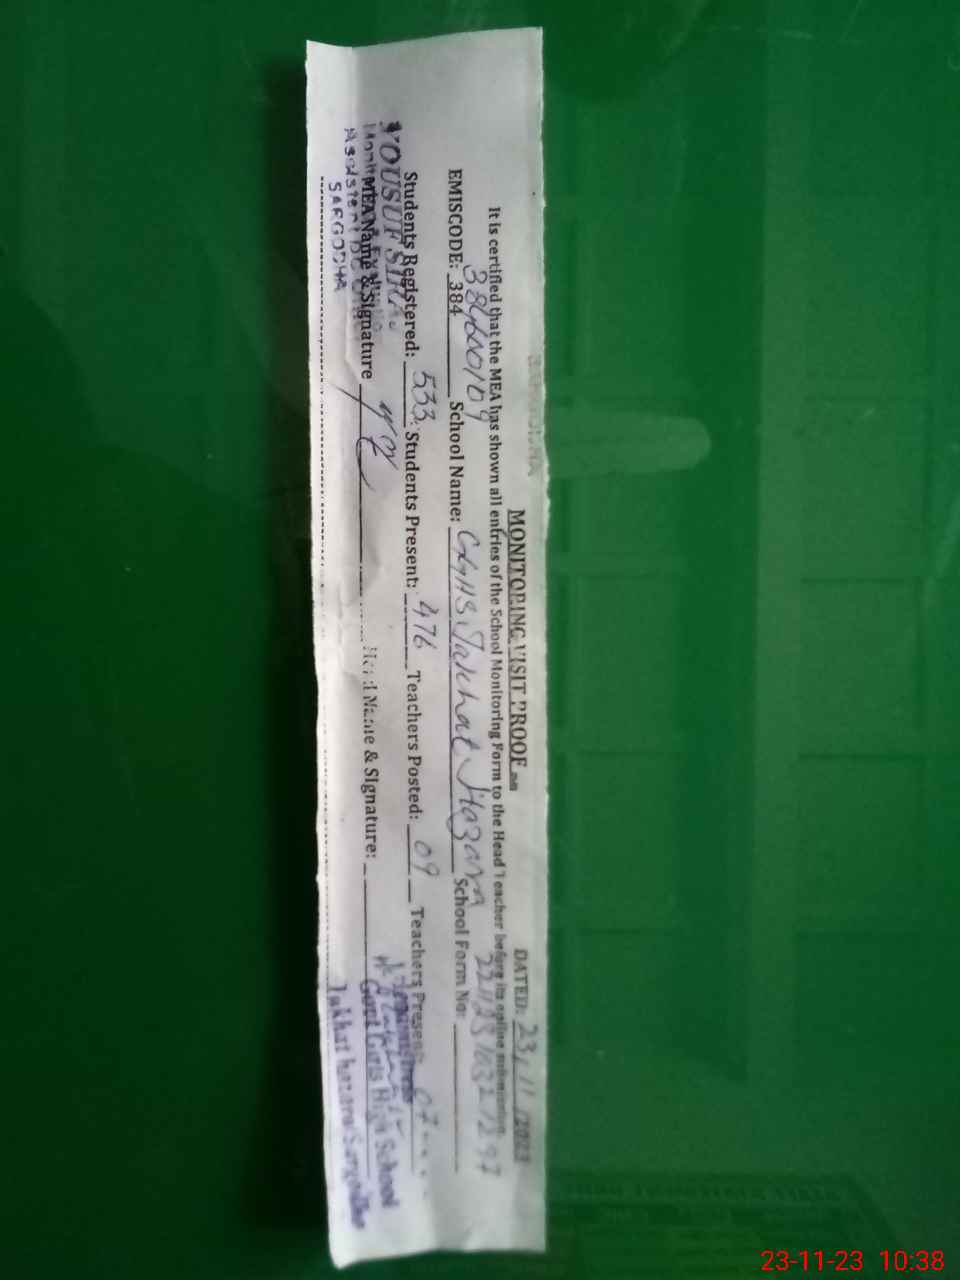 MONITORING VISIT PROOF DATED: 23/11/2023
It is certified that the MEA has shown all entries of the School Monitoring Form to the Head Teacher before its online submission
EMISCODE: 384 38460109 School Name: GGHS Takhat Hazara School Form No:
Students Registered: 533 Students Present: 476 Teachers Posted: 09 Teachers Present: 07
MEA Name & Signature Head Name & Signature:
YOUSUF
SARGODHA
Govt Girls High School
Takhat hazara Sargodha
23-11-23 10:38